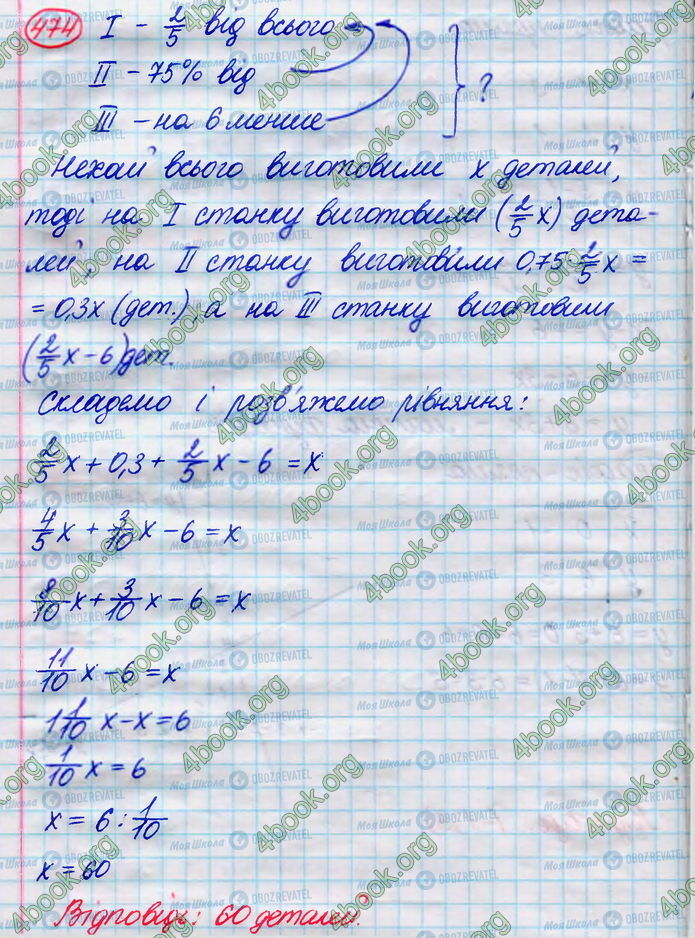 474 I – 2/5 від всього
II – 75% від
III – на 6 менше
?
Нехай всього виготовили x деталей,
тоді на I станку виготовили (2/5 x) дета-
лей, на II станку виготовили 0,75·2/5 x =
= 0,3x (дет.) а на III станку виготовили
(2/5 x – 6) дет.
Складемо і розв'яжемо рівняння:
2/5 x + 0,3 + 2/5 x – 6 = x
4/5 x + 3/10 x – 6 = x
8/10 x + 3/10 x – 6 = x
11/10 x – 6 = x
1 1/10 x – x = 6
1/10 x = 6
x = 6 : 1/10
x = 60
Відповідь: 60 деталей.